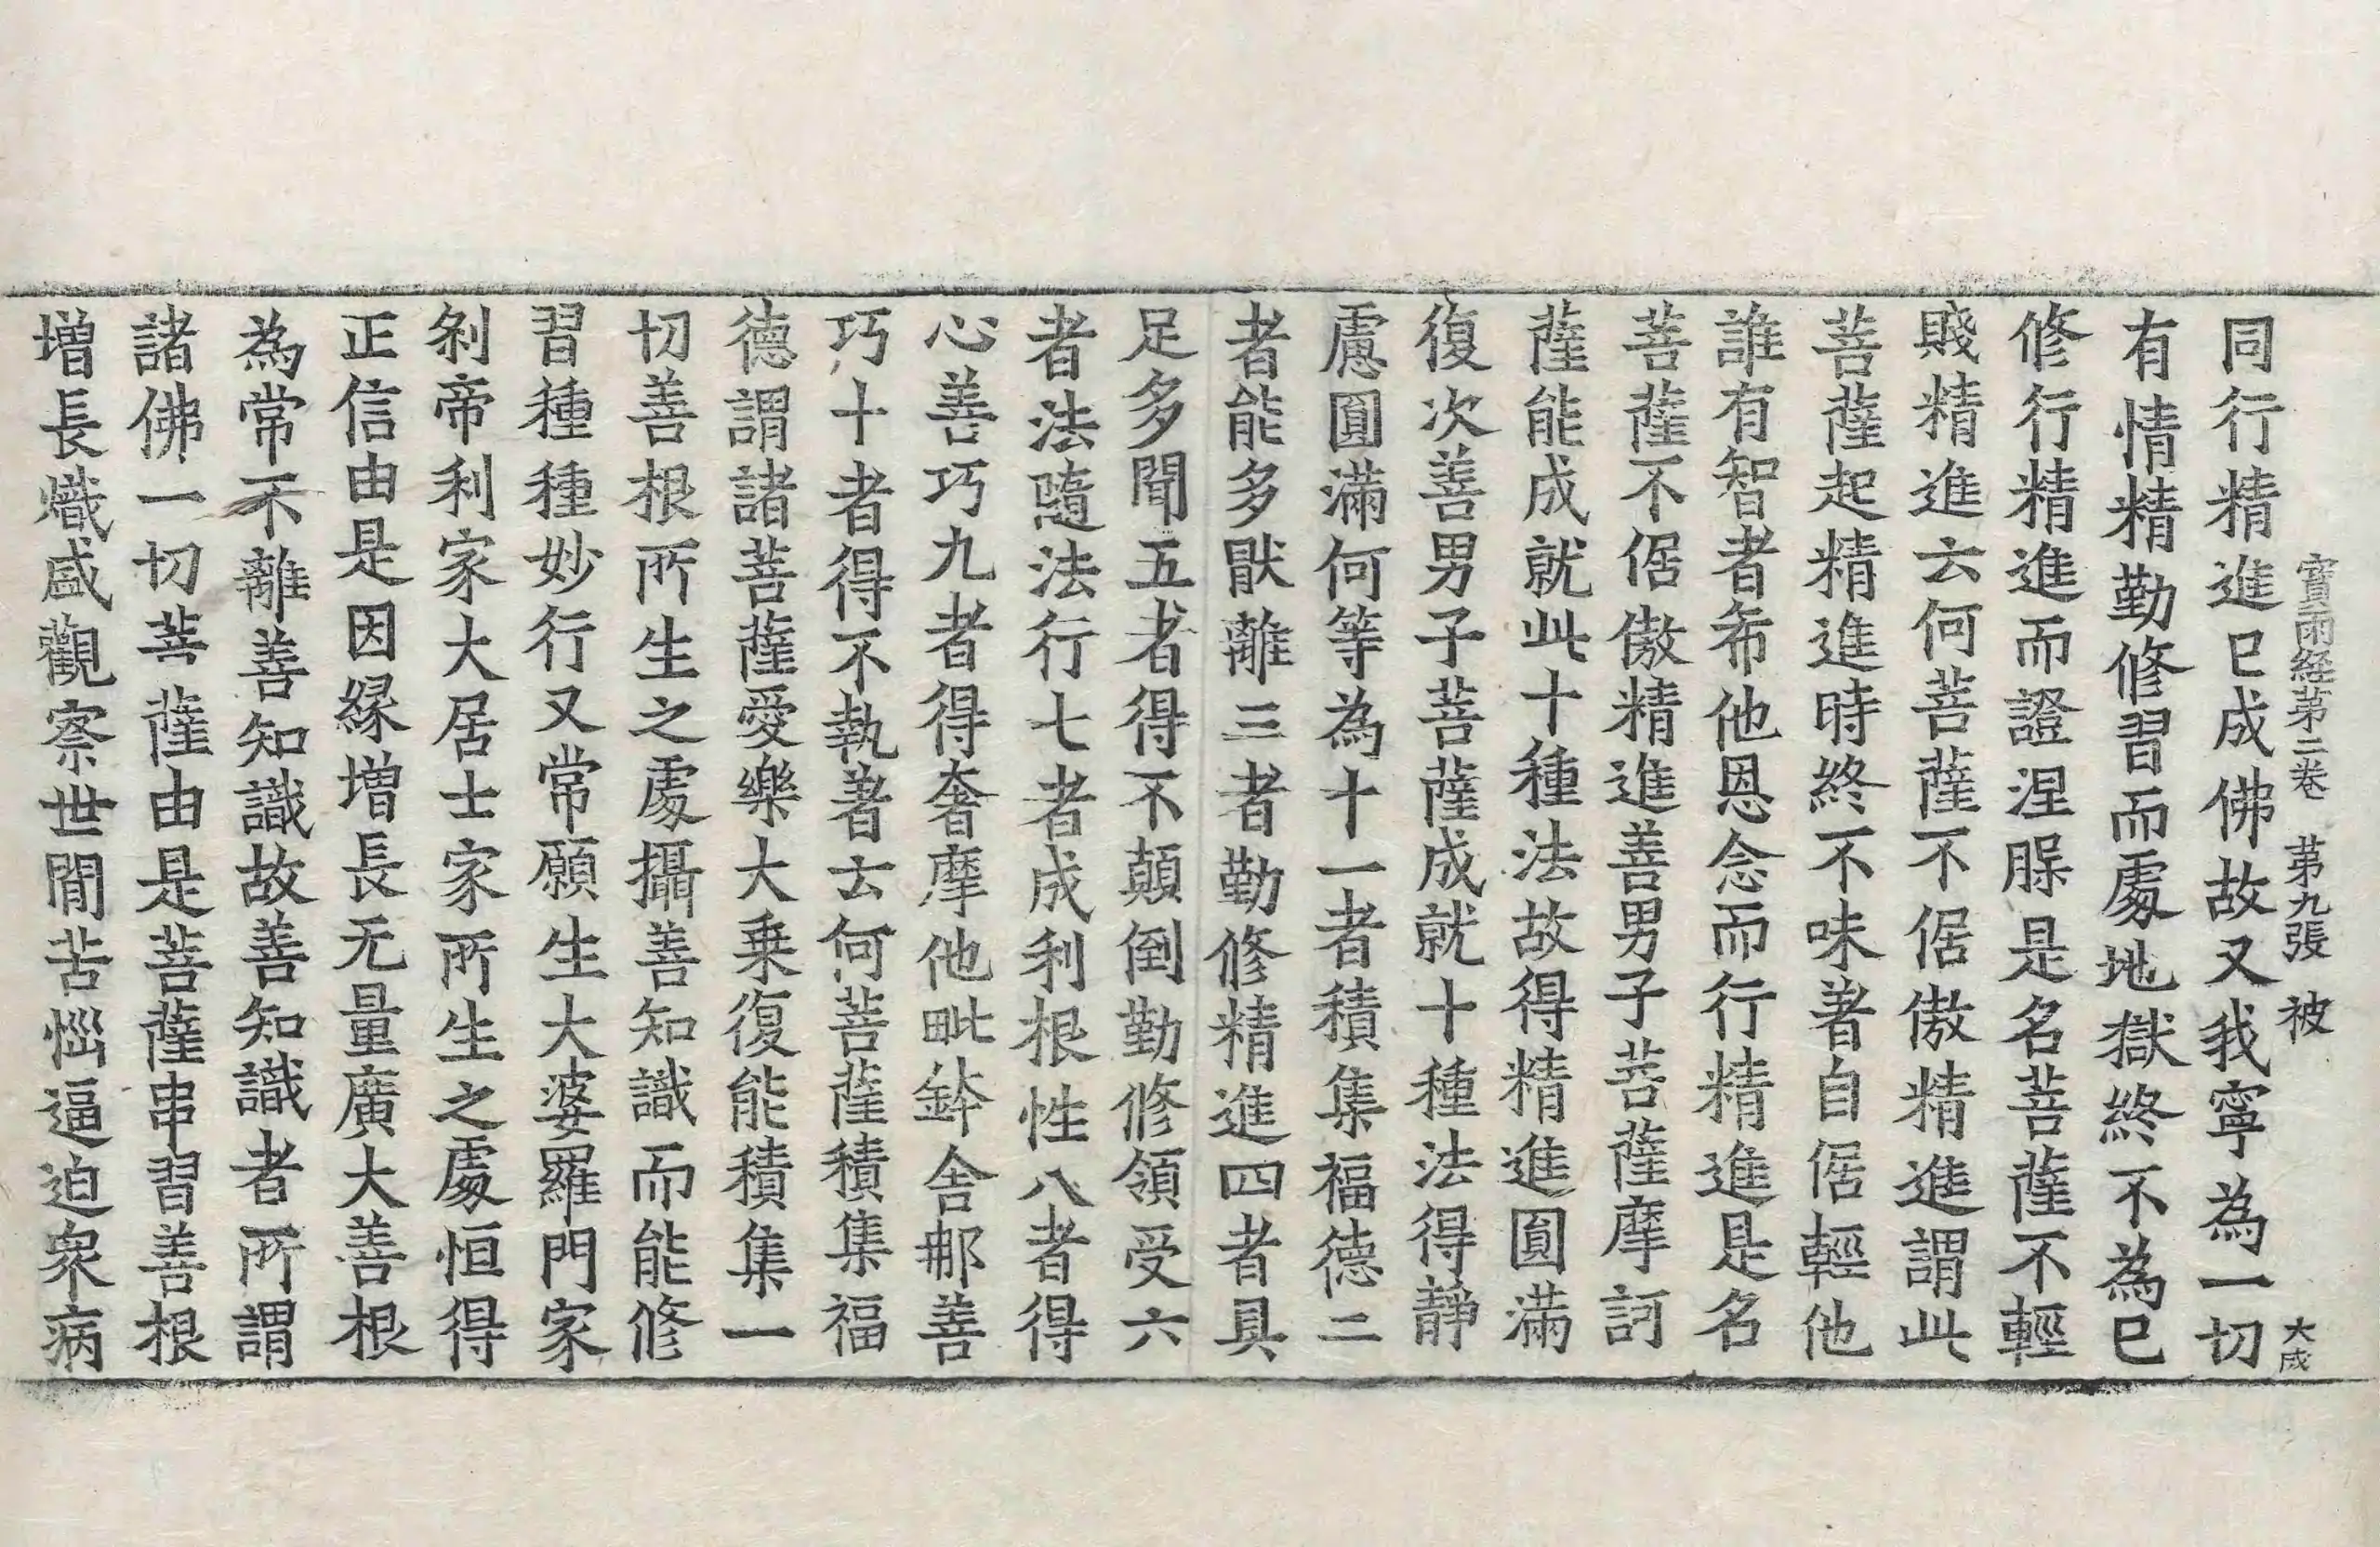 寶雨経苐二卷 苐九張 被 大成
同行精進已成佛故又我寧為一切
有情精勤修習而處地獄終不為已
修行精進而證涅脲是名菩薩不輕
賤精進云何菩薩不倨傲精進謂此
菩薩起精進時終不味著自倨輕他
誰有智者希他恩念而行精進是名
菩薩不倨傲精進善男子菩薩摩訶
薩能成就此十種法故得精進圓滿
復次善男子菩薩成就十種法得靜
慮圓滿何等為十一者積集福德二
者能多猒離三者勤修精進四者具
足多聞五者得不顛倒勤修領受六
者法隨法行七者成利根性八者得
心善巧九者得奢摩他毗鉢舍那善
巧十者得不執著云何菩薩積集福
德謂諸菩薩愛樂大乗復能積集一
切善根所生之處攝善知識而能修
習種種妙行又常願生大婆羅門家
剎帝利家大居士家所生之處恒得
正信由是因縁増長无量廣大善根
為常不離善知識故善知識者所謂
諸佛一切菩薩由是菩薩串習善根
増長熾盛觀察世間苦惱逼迫衆病